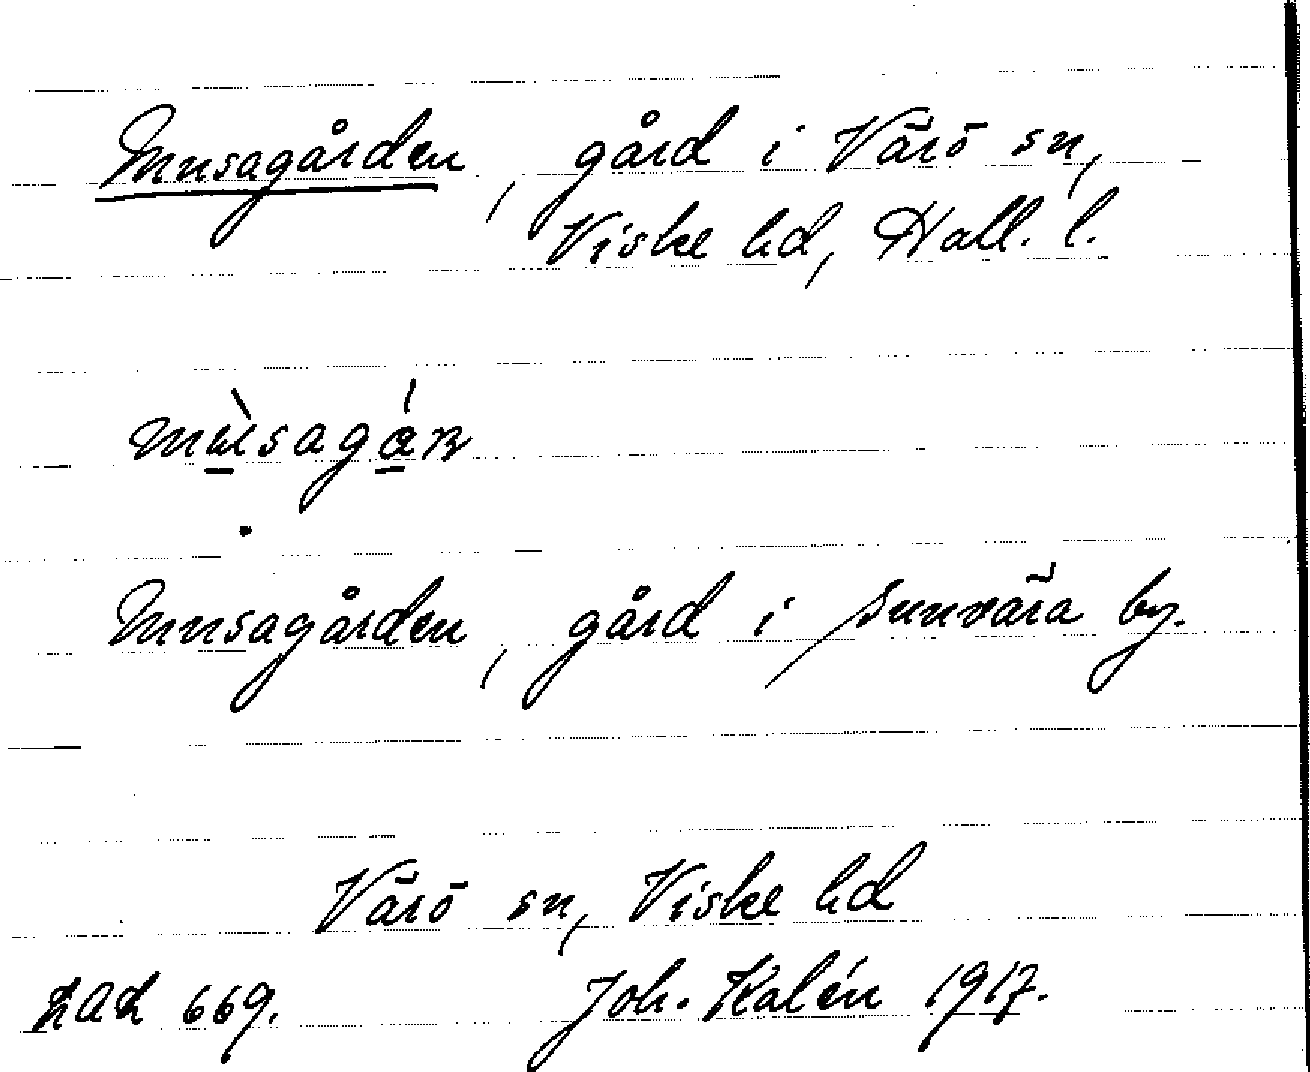 Musagården, gård i Värö sn,
Viske hd, Hall. l.
mùsagán
Musagården, gård i Sunvära by.
Värö sn, Viske hd
669. Joh. Kalén 1917.